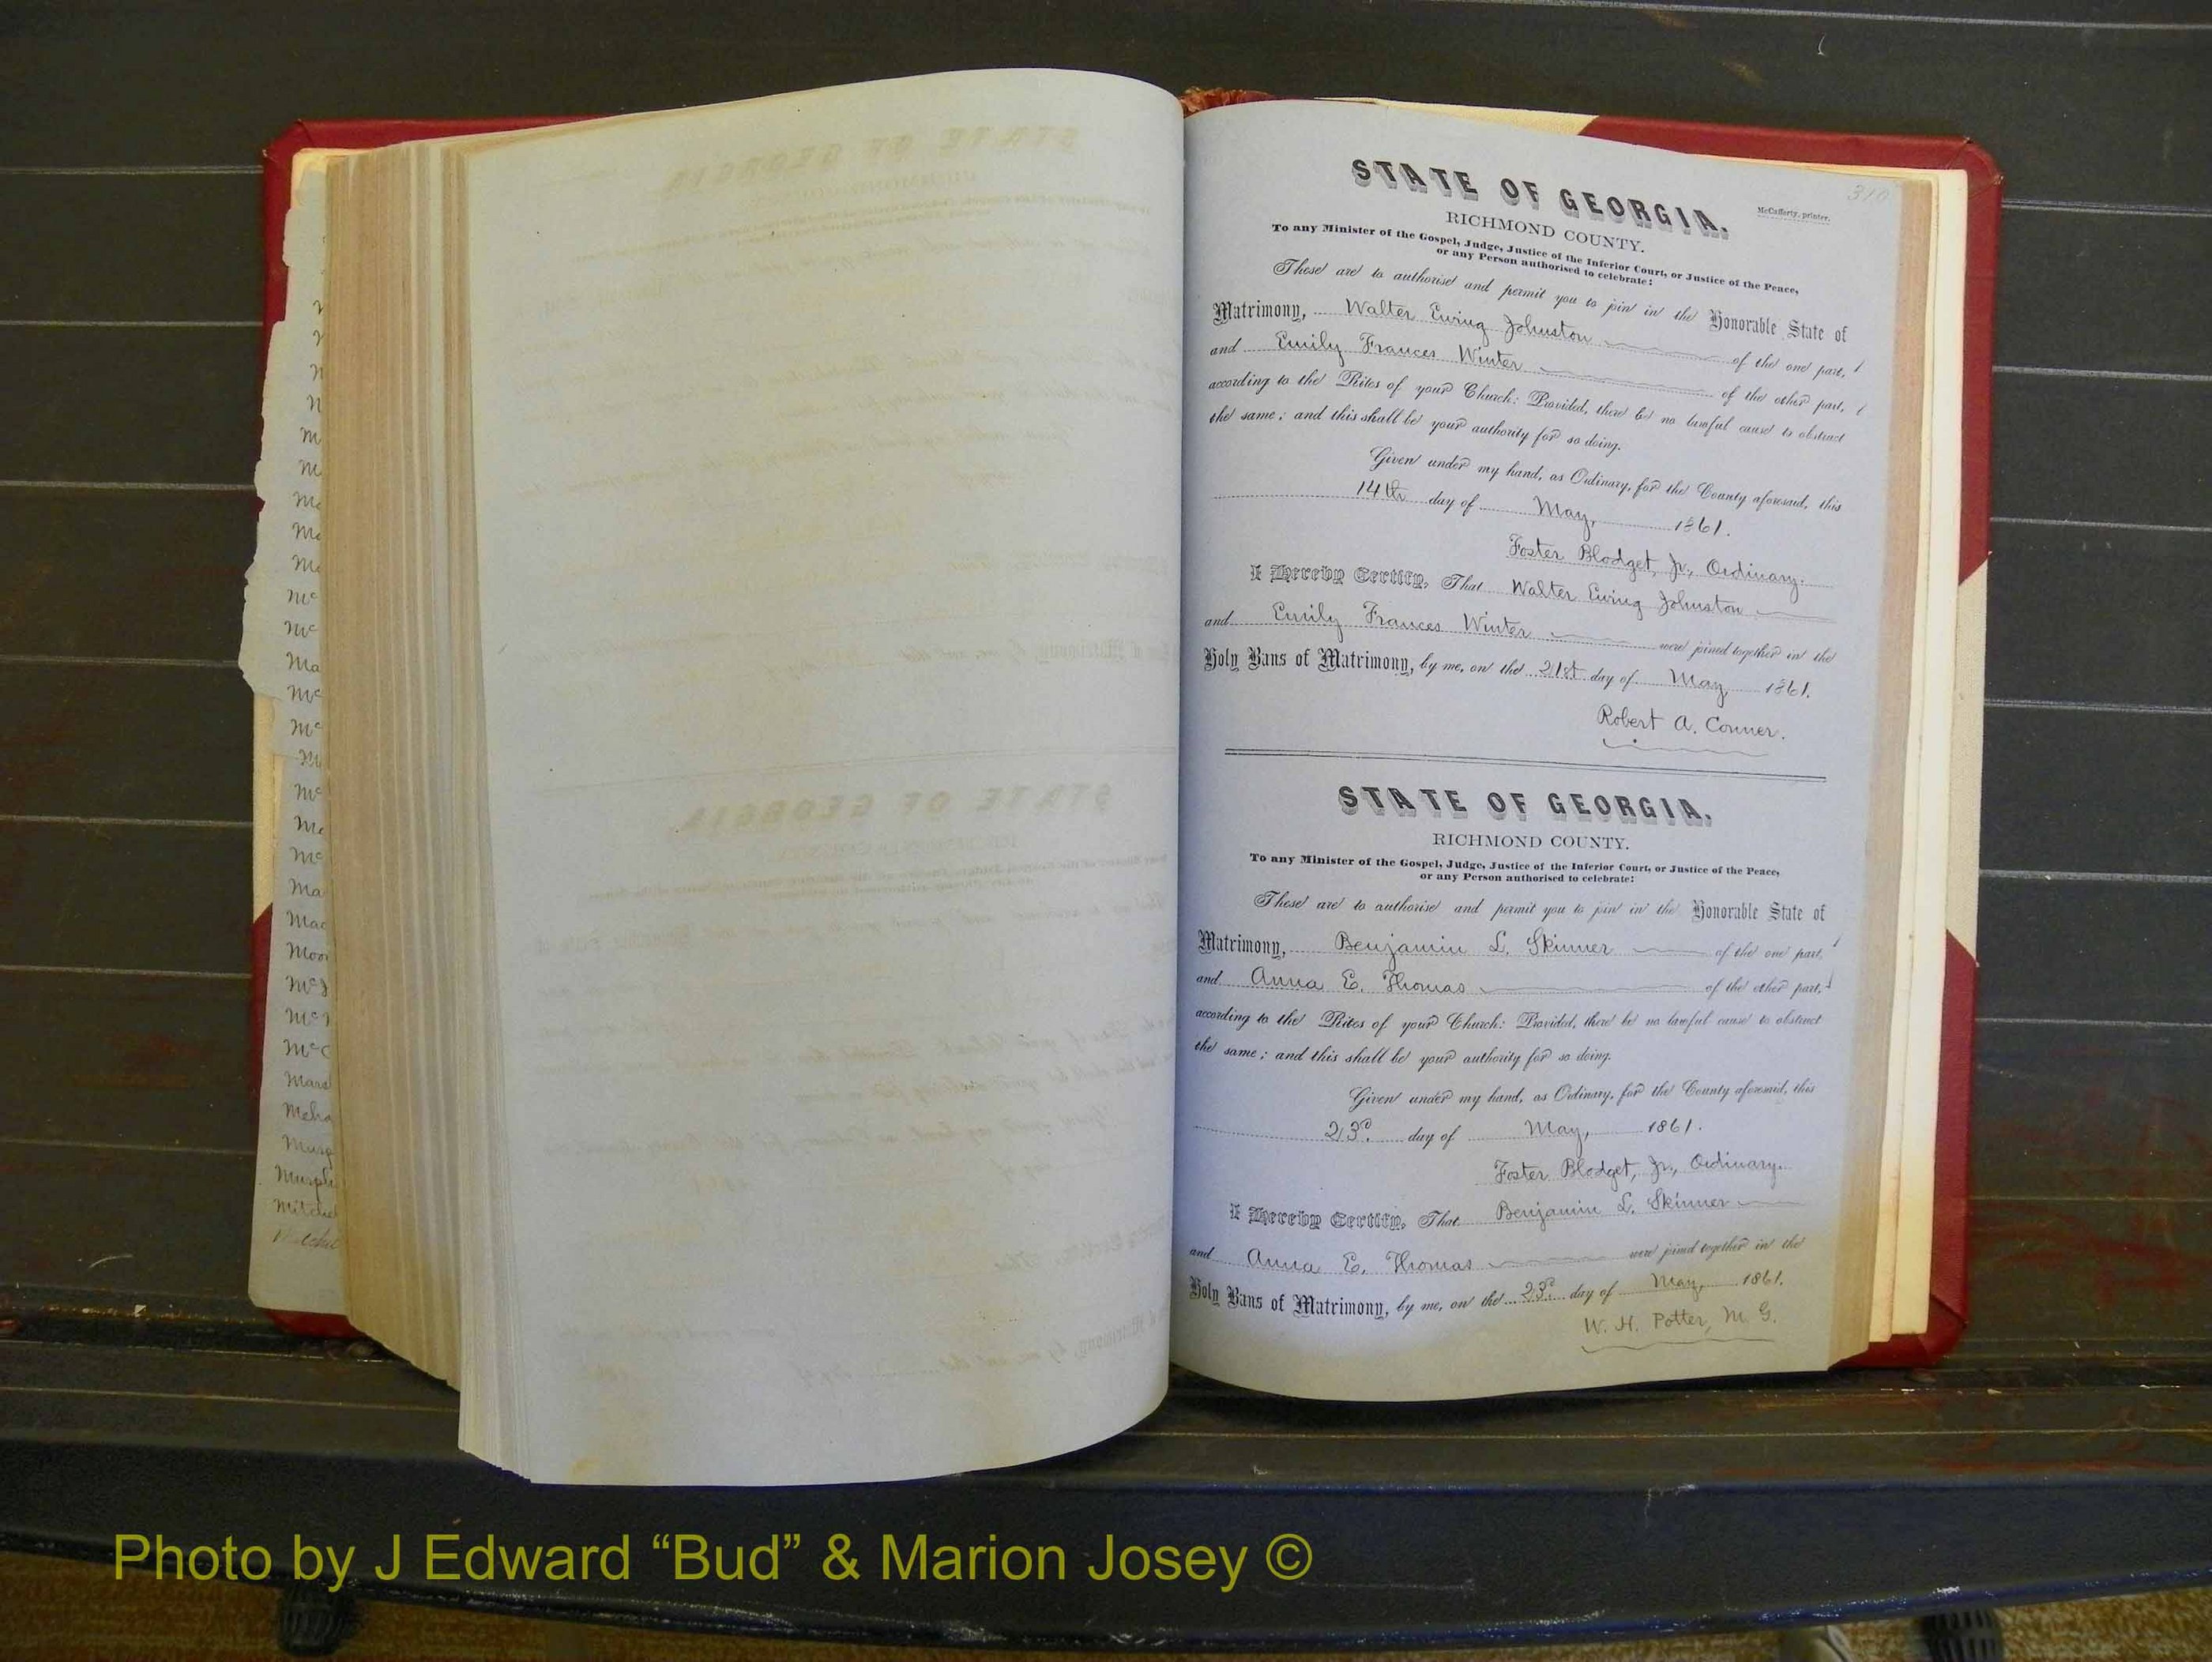 310
McCafferty, printer.
STATE OF GEORGIA.
RICHMOND COUNTY.
To any Minister of the Gospel, Judge, Justice of the Inferior Court, or Justice of the Peace,
or any Person authorised to celebrate:
These are to authorise and permit you to join in the Honorable State of
Matrimony, Walter Ewing Johnston of the one part,
and Emily Frances Winter of the other part,
according to the Rites of your Church: Provided, there be no lawful cause to obstruct
the same; and this shall be your authority for so doing.
Given under my hand, as Ordinary, for the County aforesaid, this
14th day of May, 1861.
Foster Blodget, Jr., Ordinary.
I Hereby Certify, That Walter Ewing Johnston
and Emily Frances Winter were joined together in the
Holy Bans of Matrimony, by me, on the 21st day of May 1861.
Robert A. Conner.
STATE OF GEORGIA.
RICHMOND COUNTY.
To any Minister of the Gospel, Judge, Justice of the Inferior Court, or Justice of the Peace,
or any Person authorised to celebrate:
These are to authorise and permit you to join in the Honorable State of
Matrimony, Benjamin L. Skinner of the one part,
and Anna E. Thomas of the other part,
according to the Rites of your Church: Provided, there be no lawful cause to obstruct
the same; and this shall be your authority for so doing.
Given under my hand, as Ordinary, for the County aforesaid, this
23d. day of May, 1861.
Foster Blodget, Jr., Ordinary.
I Hereby Certify, That Benjamin L. Skinner
and Anna E. Thomas were joined together in the
Holy Bans of Matrimony, by me, on the 23d. day of May, 1861.
W. H. Potter, M. G.
Photo by J Edward “Bud” & Marion Josey ©